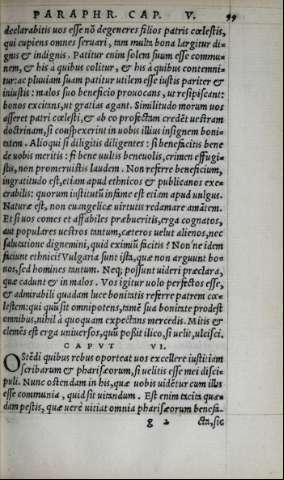 PARAPHR. CAP. V. 99
declarabitis uos esse nõ degeneres filios patris cœlestis,
qui cupiens omnes seruari, tam multa bona largitur di-
gnis & indignis. Patitur enim solem suum esse commu-
nem, & his à quibus colitur, & his à quibus contemni-
tur: ac pluuiam suam patitur utilem esse iustis pariter &
iniustis: malos suo beneficio prouocans, ut resipiscant:
bonos excitans, ut gratias agant. Similitudo morum uos
asseret patri cœlesti, & ab eo profectam credẽt uestram
doctrinam, si conspexerint in uobis illius insignem boni-
tatem. Alioqui si diligitis diligentes: si beneficitis bene
de uobis meritis: si bene uultis beneuolis, crimen effugi-
stis, non promeruistis laudem. Non referre beneficium,
ingratitudo est, etiam apud ethnicos & publicanos exe-
crabilis: quorum institutũ infame est etiam apud uulgus.
Naturæ est, non euangelicæ uirtutis redamare amãtem.
Et si uos comes et affabiles præbueritis, erga cognatos,
aut populares uestros tantum, cæteros uelut alienos, nec
salutatione dignemini, quid eximiũ facitis? Non'ne idem
faciunt ethnici? Vulgaria sunt ista, quæ non arguunt bo
nos, sed homines tantum. Neq; possunt uideri præclara,
quæ cadunt & in malos. Vos igitur uolo perfectos esse,
& admirabili quadam luce bonitatis referre patrem cœ-
lestem: qui quũ sit omnipotens, tamẽ sua bonitate prodest
omnibus, nihil à quoquam expectans mercedis. Mitis &
clemẽs est erga uniuersos, quũ possit ilico, si uelit, ulcisci.
CAPVT VI.
OStẽdi quibus rebus oporteat uos excellere iustitiam
scribarum & pharisæorum, si uelitis esse mei disci-
puli. Nunc ostendam in his, quæ uobis uidẽtur cum illis
esse communia, quid sit uitandum. Est enim tacita quæ-
dam pestis, quæ uerè uitiat omnia pharisæorum benefi-
g 2 cta, sic